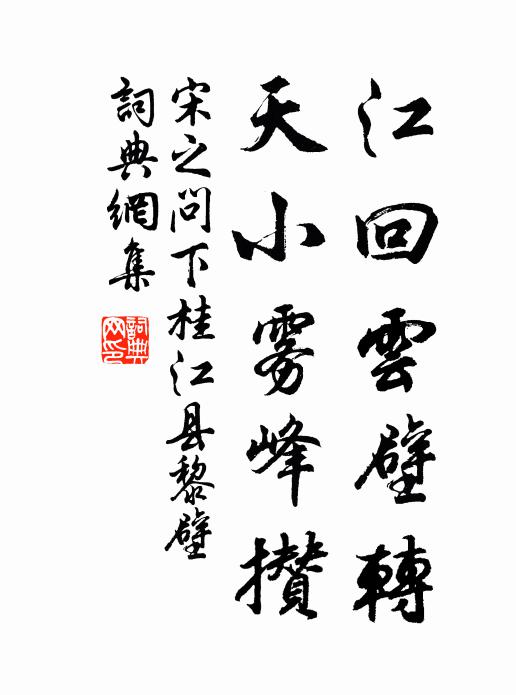 江回雲壁轉
天小雾峰攢
宋之问下桂江县黎壁
詞典網集
詞典
网印